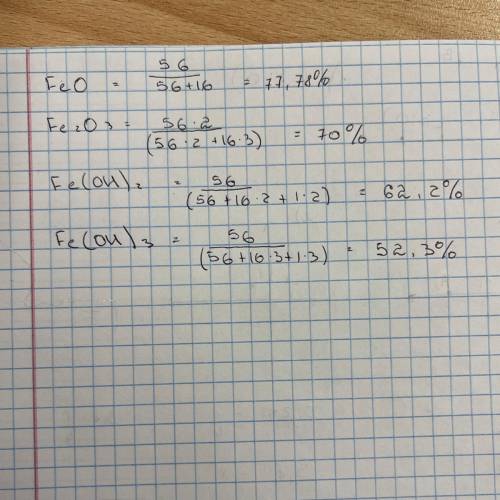 FeO = 56 / 56+16 = 77,78%
Fe₂O₃ = 56·2 / (56·2+16·3) = 70%
Fe(OH)₂ = 56 / (56+16·2+1·2) = 62,2%
Fe(OH)₃ = 56 / (56+16·3+1·3) = 52,3%